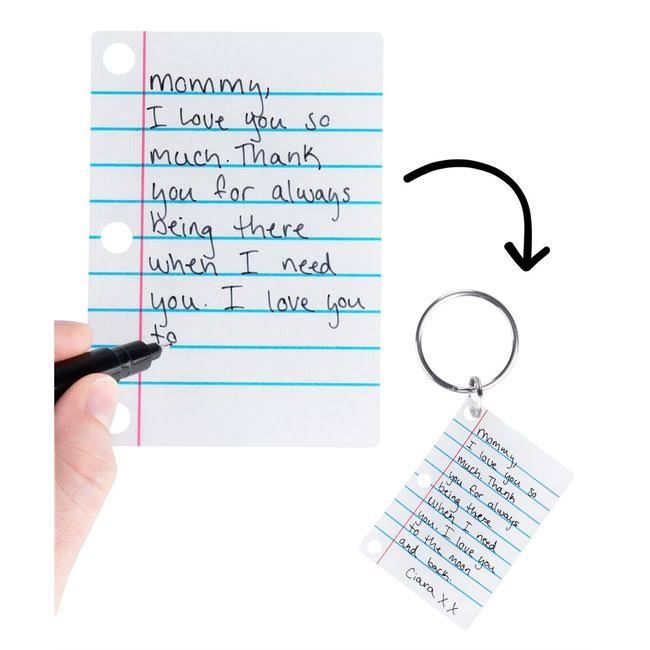 mommy,
I love you so
much. Thank
you for always
being there
when I need
you. I love you
to
mommy,
I love you so
much. Thank
you for always
being there
when I need
you. I love you
to the moon
and back.
Ciara X X